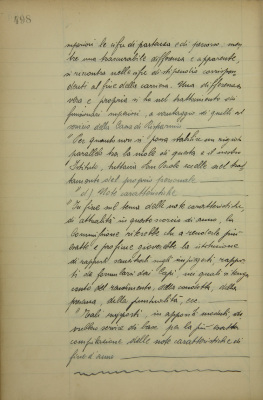 198
superiori le cifre di partenza e di percorso, men-
tre una trascurabile differenza è apparente,
si riscontra nelle cifre di stipendio corrispon-
denti al fine della carriera. Una differenza
vera e propria si ha nel trattamento dei
funzionari superiori, a vantaggio di quelli al
servizio della Cassa di Risparmio
" Per quanto non si possa stabilire un vero
parallelo tra la mole di questa e il nostro
Istituto, tuttavia
tamento del proprio personale
" d) Note caratteristiche
" In fine sul tema delle note caratteristiche,
di attualità in questo scorcio di anno, la
Commissione riflette che a renderle più
esatte e proficue gioverebbe la istituzione
di rapporti mensili sugli impiegati, rappor-
ti da formularsi dai Capi, nei quali si tenga
conto del rendimento, della condotta, della
persona, della puntualità, ecc.
" Tali rapporti, in appositi moduli, do-
vrebbero servire di base per la più esatta
compilazione delle note caratteristiche di
fine d'anno